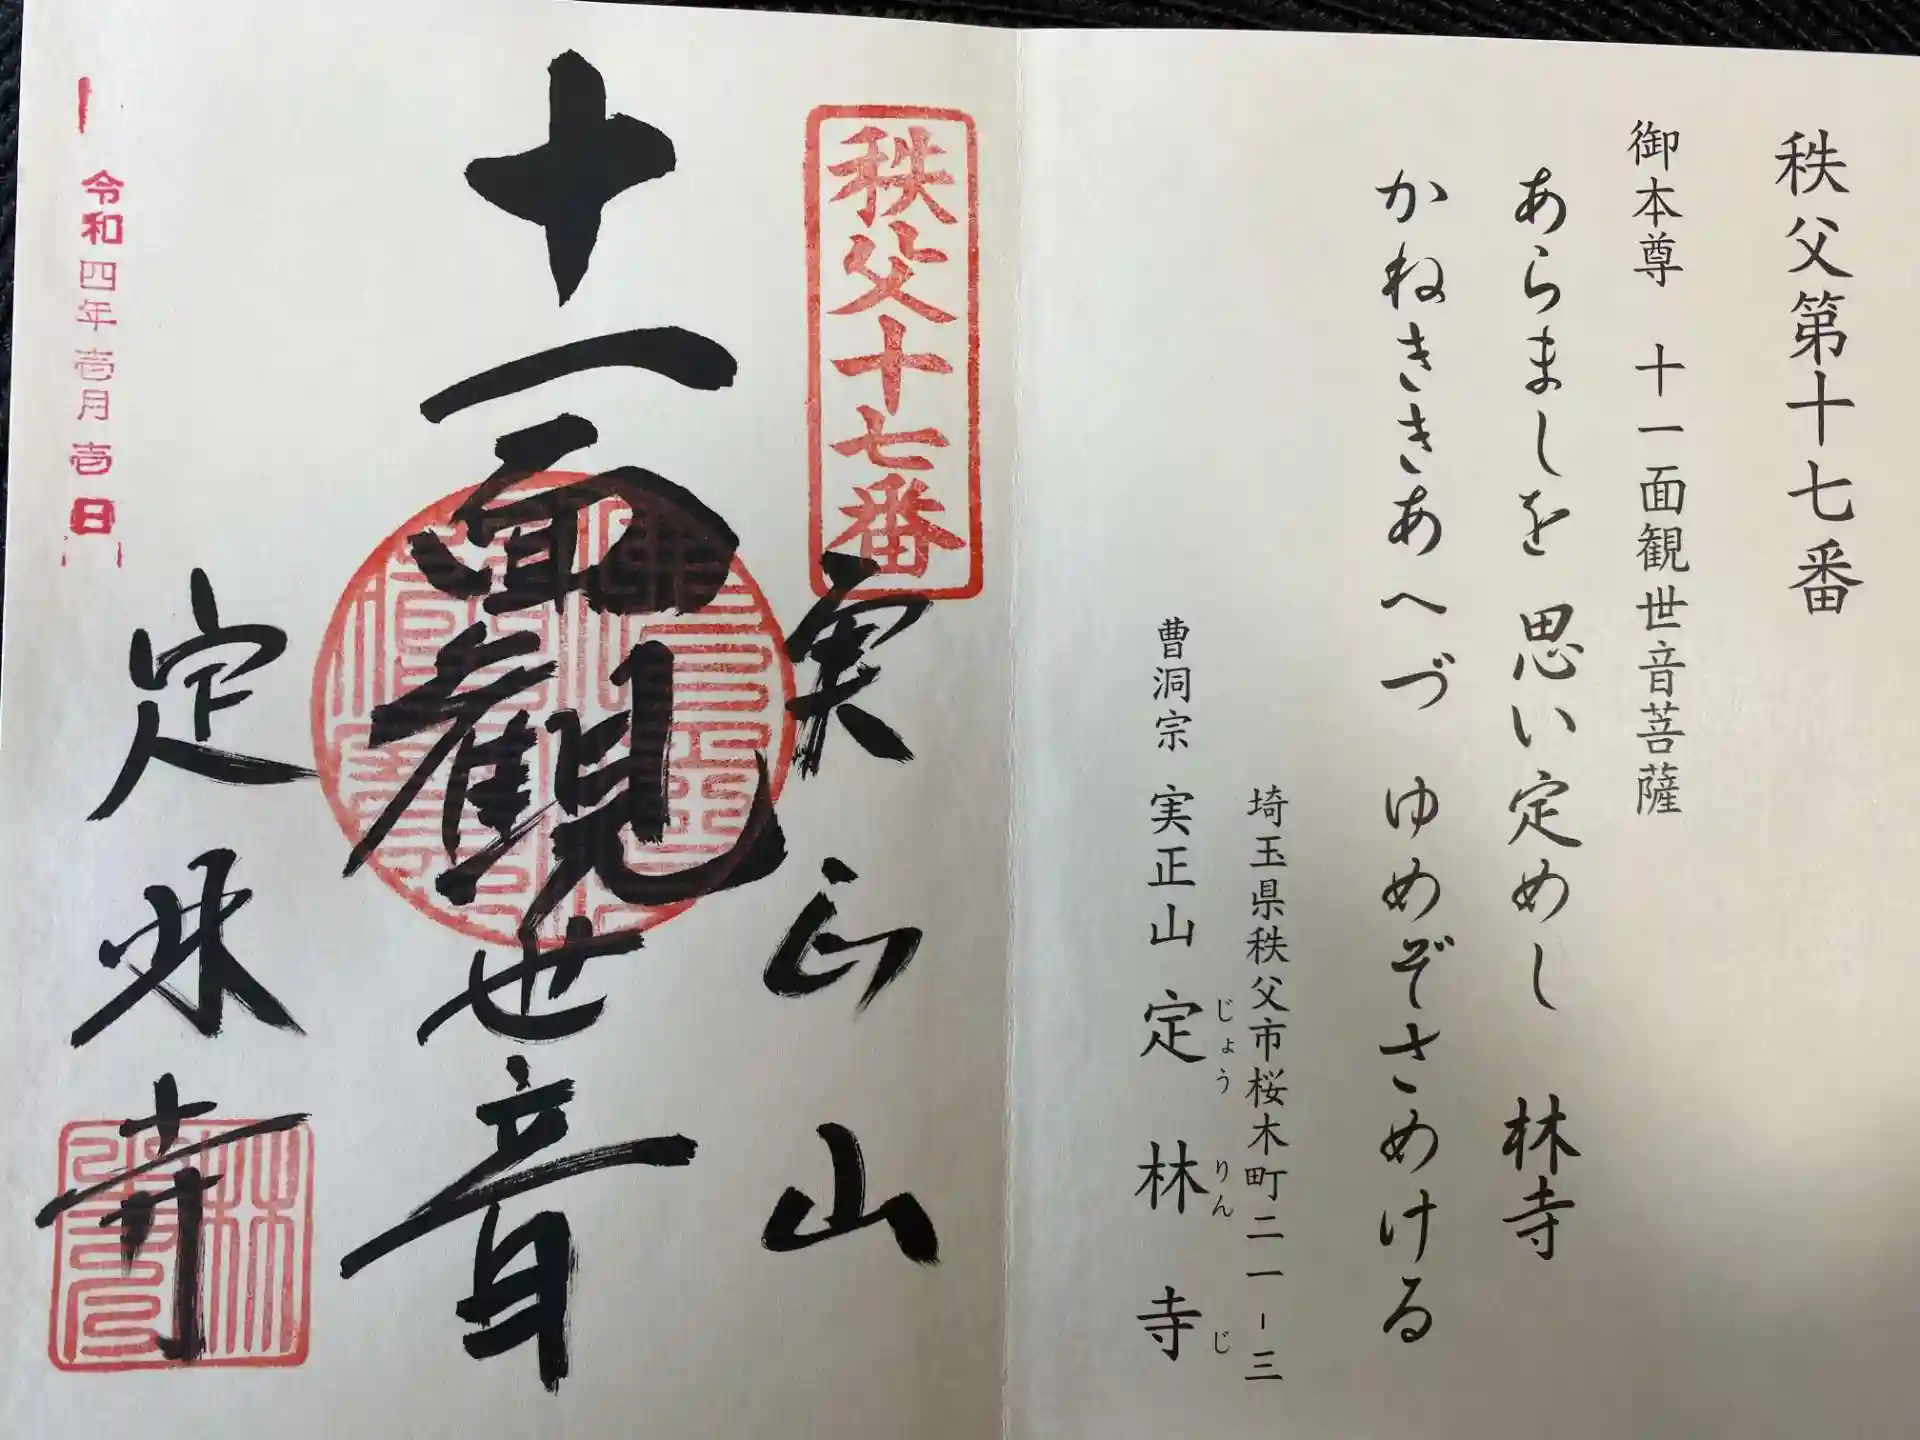 秩父第十七番
御本尊 十一面観世音菩薩
あらましを 思い定めし 林寺
かねききあへづ ゆめぞさめける
埼玉県秩父市桜木町二一-三
曹洞宗 実正山 定林寺
じょうりんじ
秩父十七番
実正山
十一面観世音
定林寺
令和四年壱月壱日